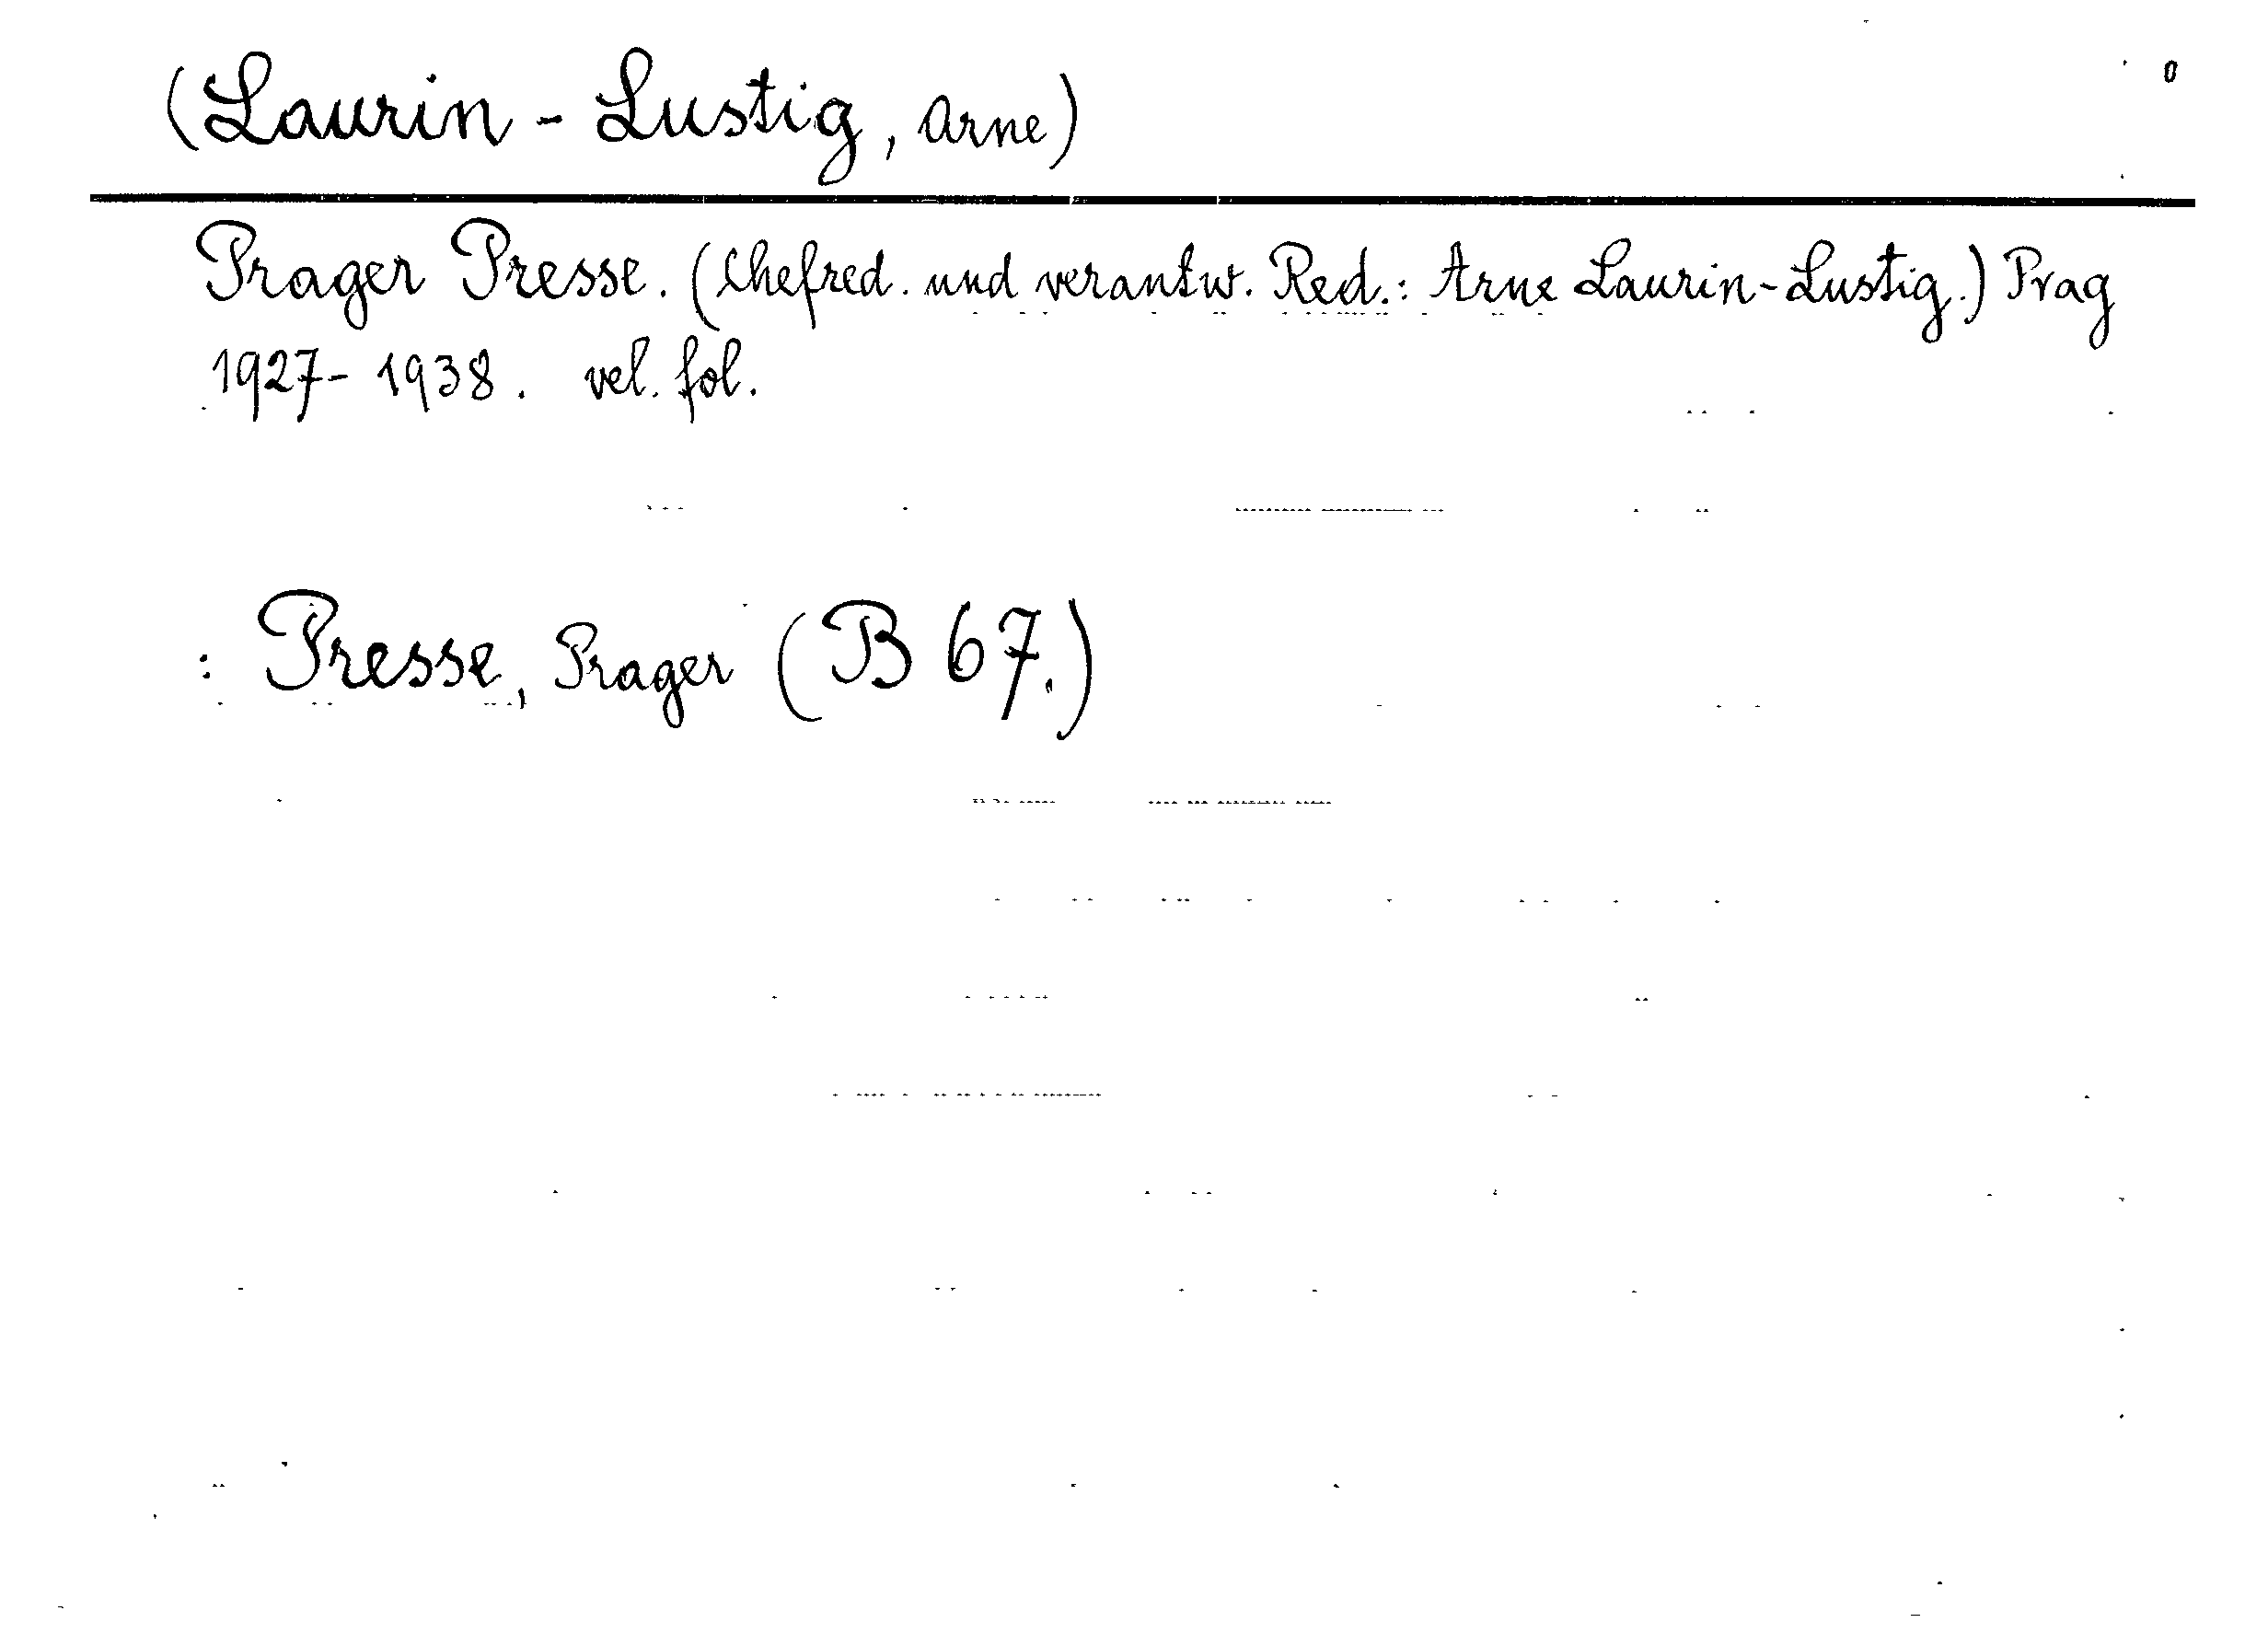 (Laurin - Lustig, Arne)
Prager Presse. (Chefred. und verantw. Red.: Arne Laurin-Lustig.) Prag
1927-1938. vel. fol.
: Presse, Prager (B 67.)